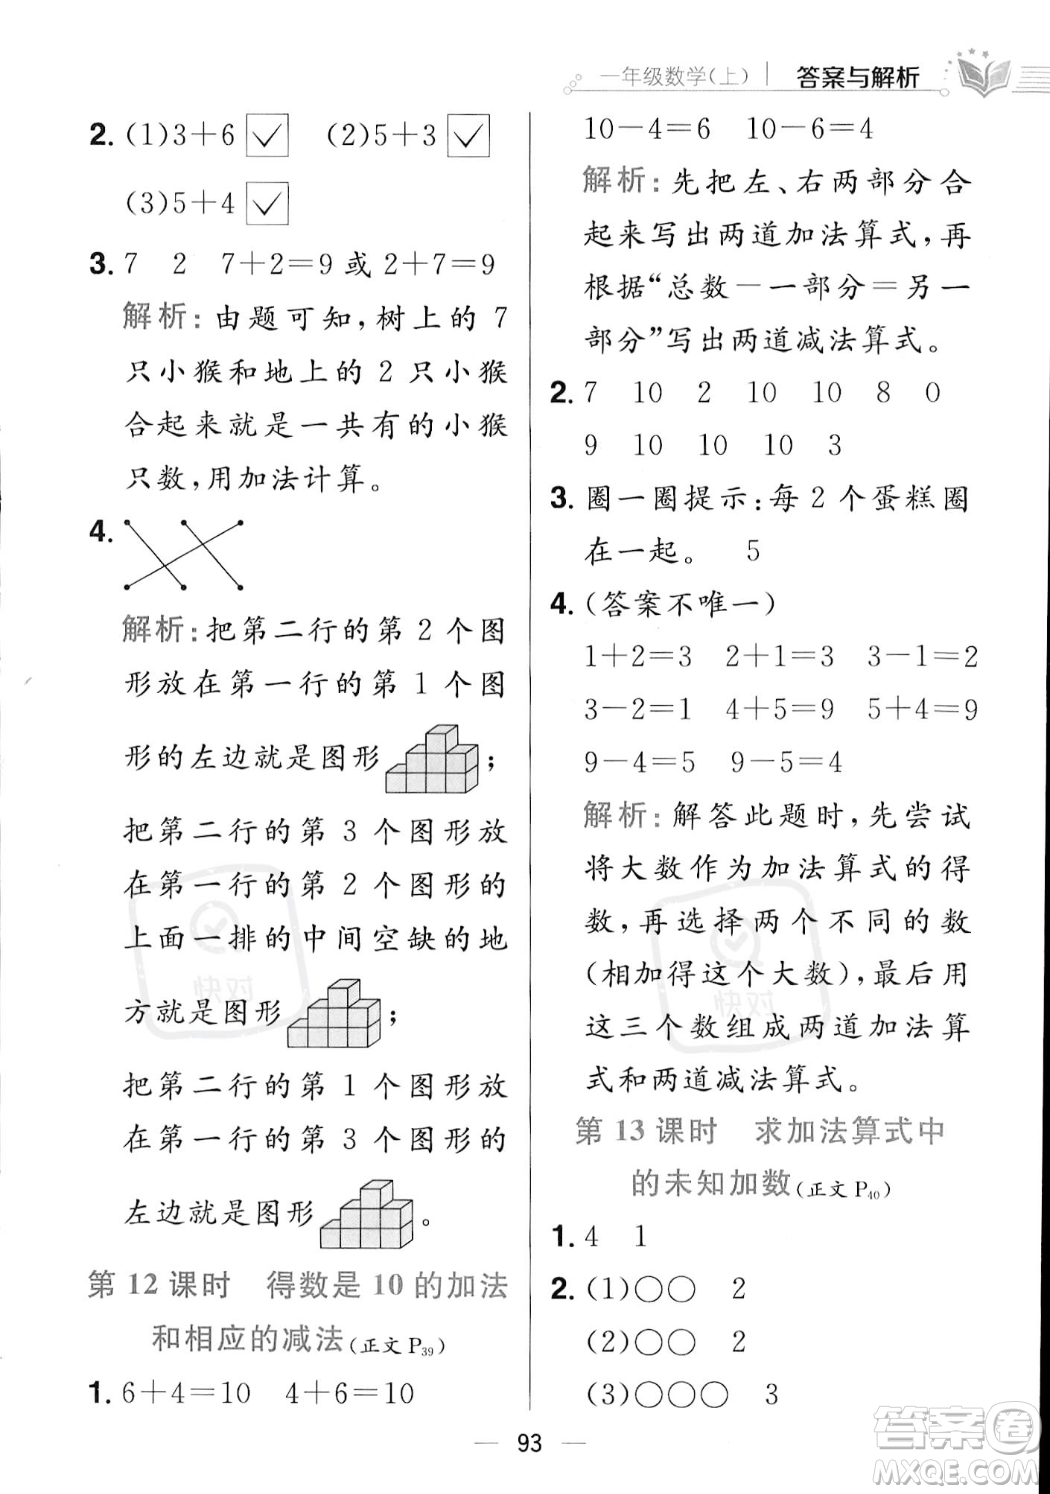 一年级数学(上) 答案与解析
2. (1)3+6 ✓ (2)5+3 ✓
(3)5+4 ✓
3. 7 2 7+2=9 或 2+7=9
解析:由题可知,树上的 7
只小猴和地上的 2 只小猴
合起来就是一共有的小猴
只数,用加法计算。
4.
解析:把第二行的第 2 个图
形放在第一行的第 1 个图
形的左边就是图形 ;
把第二行的第 3 个图形放
在第一行的第 2 个图形的
上面一排的中间空缺的地
方就是图形 ;
把第二行的第 1 个图形放
在第一行的第 3 个图形的
左边就是图形 。
第 12 课时 得数是 10 的加法
和相应的减法(正文 P39)
1. 6+4=10 4+6=10
10-4=6 10-6=4
解析:先把左、右两部分合
起来写出两道加法算式,再
根据“总数-一部分=另一
部分”写出两道减法算式。
2. 7 10 2 10 10 8 0
9 10 10 10 3
3. 圈一圈提示:每 2 个蛋糕圈
在一起。 5
4. (答案不唯一)
1+2=3 2+1=3 3-1=2
3-2=1 4+5=9 5+4=9
9-4=5 9-5=4
解析:解答此题时,先尝试
将大数作为加法算式的得
数,再选择两个不同的数
(相加得这个大数),最后用
这三个数组成两道加法算
式和两道减法算式。
第 13 课时 求加法算式中
的未知加数(正文 P40)
1. 4 1
2. (1)○○ 2
(2)○○ 2
(3)○○○ 3
93
快对
快对
答案圈
MXQE.COM